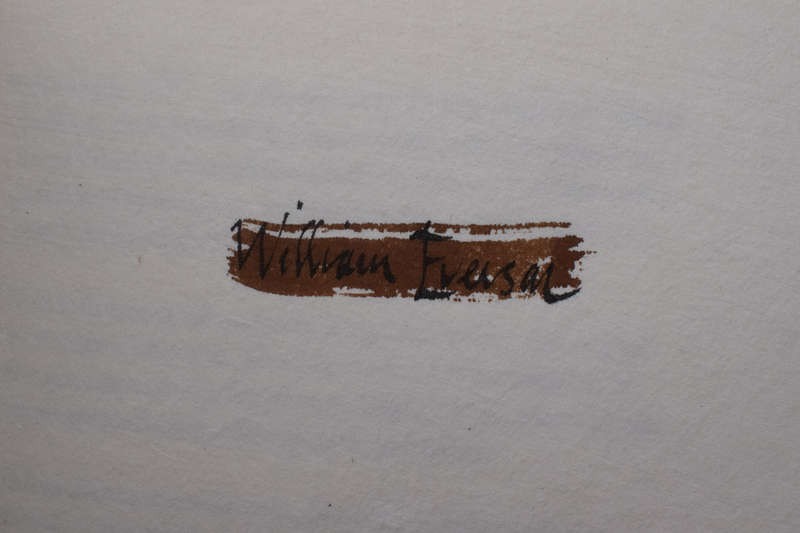 William Eversar